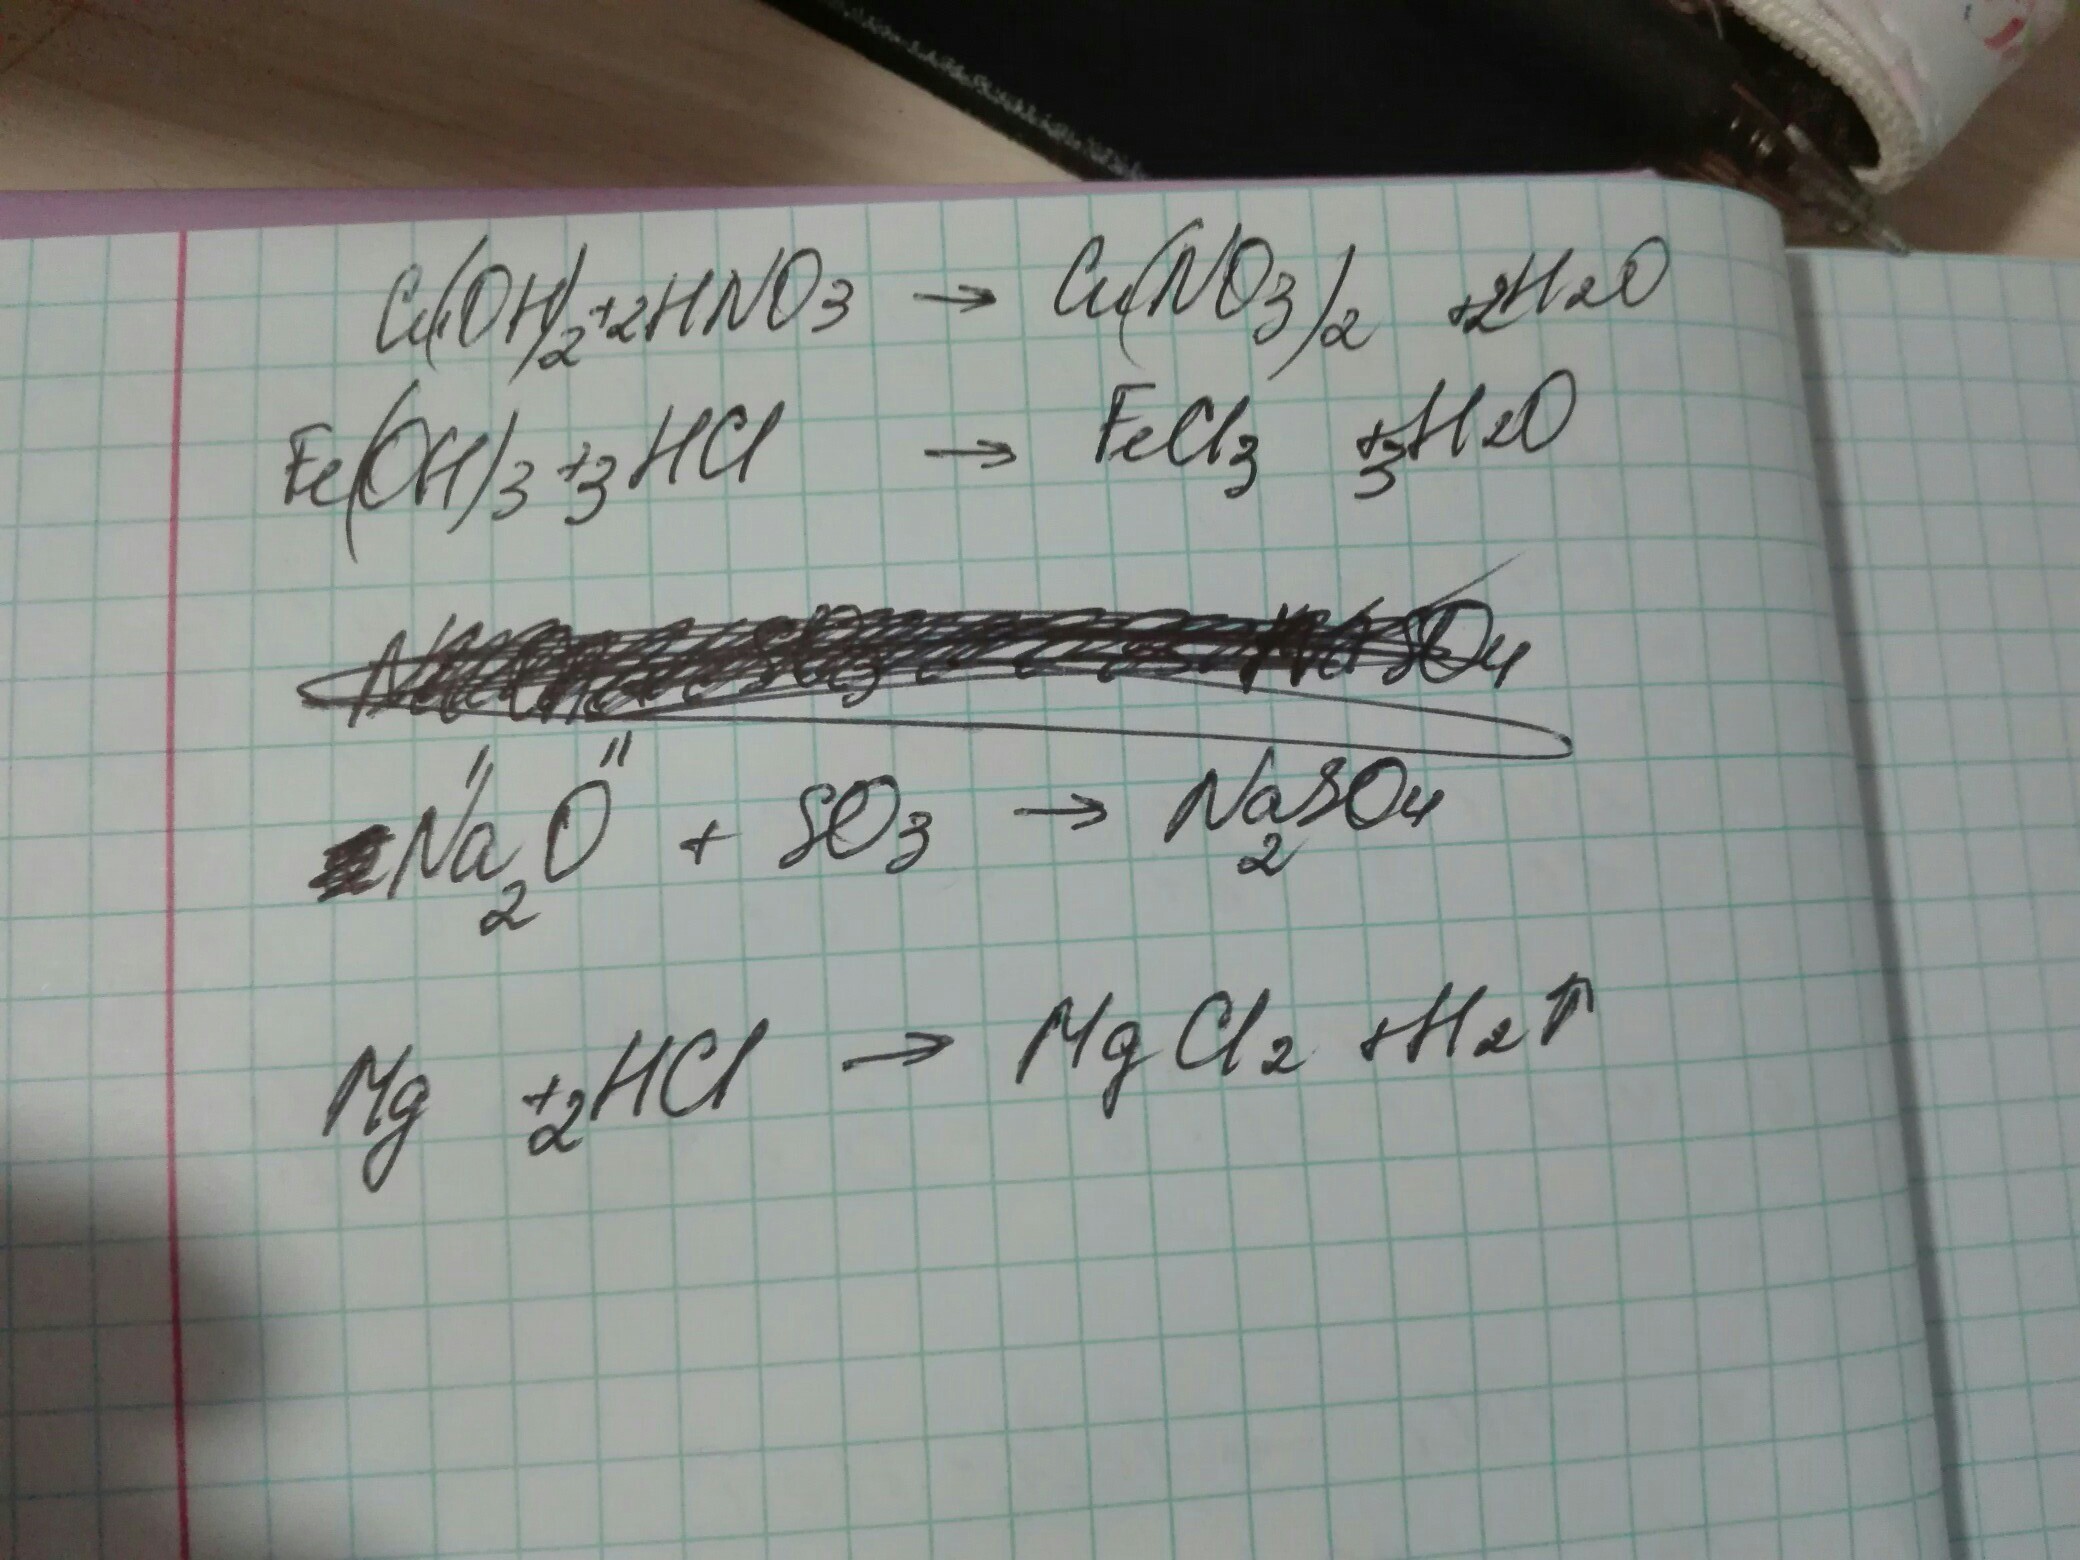 Cu(OH)2+2HNO3 → Cu(NO3)2 +2H2O
Fe(OH)3+3HCl → FeCl3 +3H2O
SO4
Na2O + SO3 → Na2SO4
Mg +2HCl → MgCl2 +H2↑